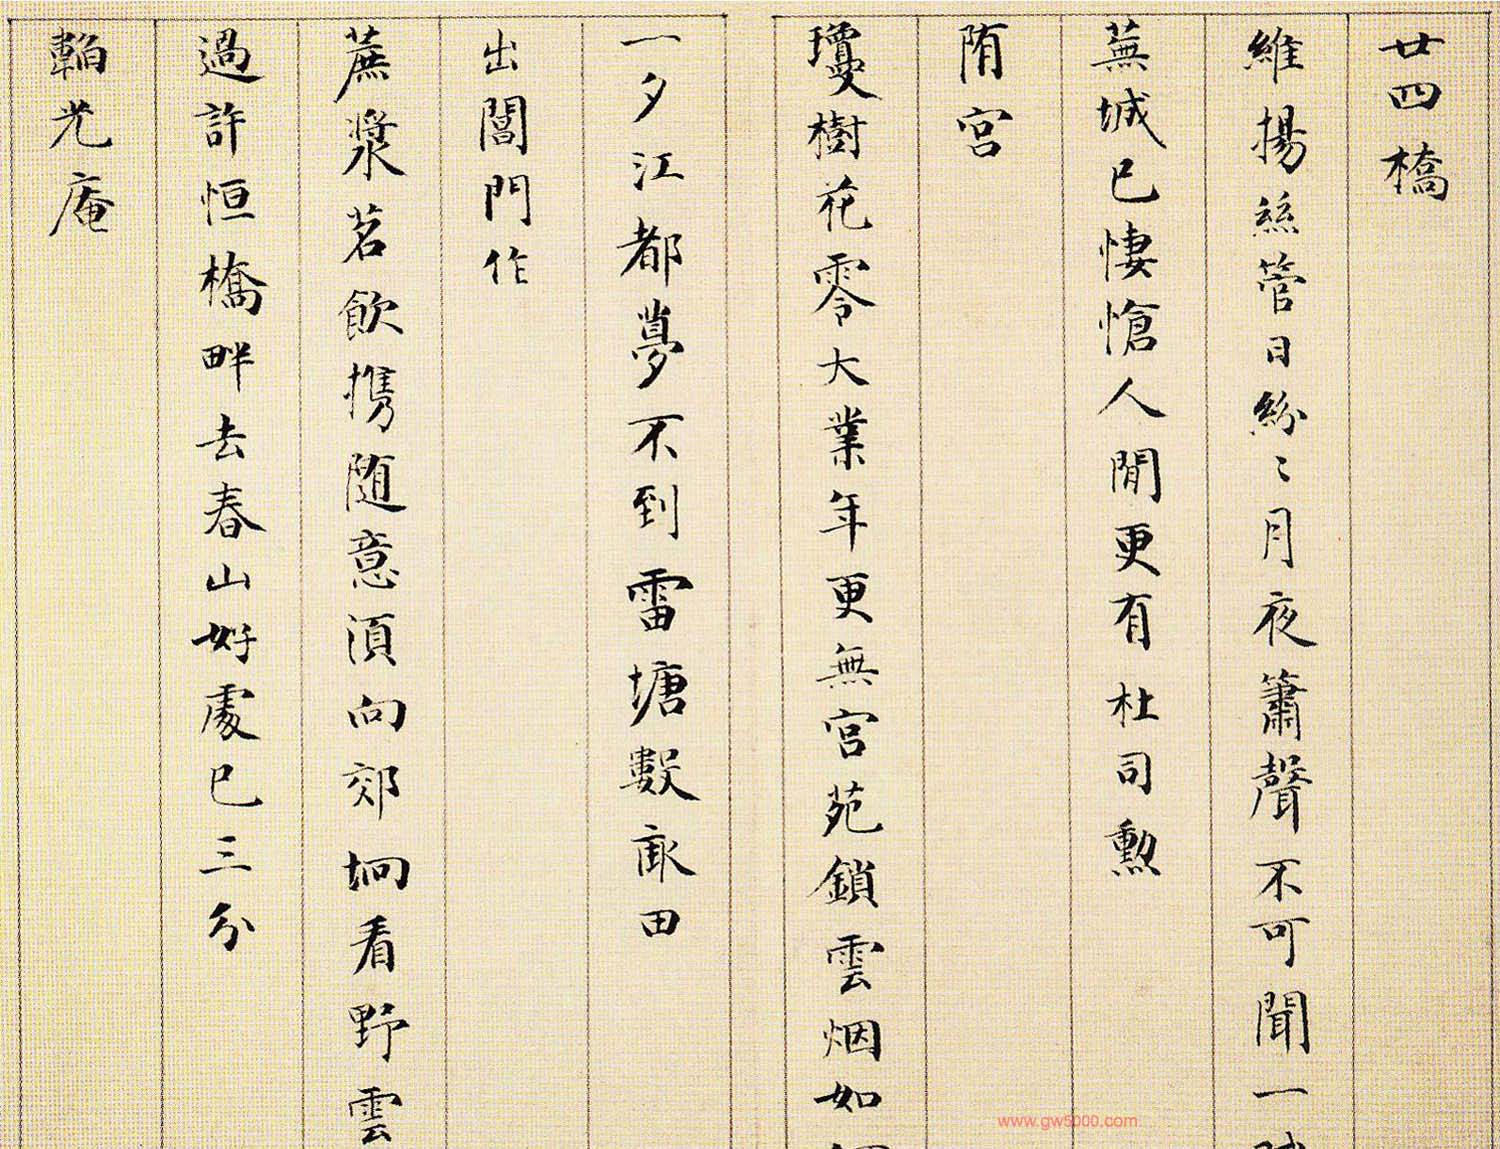 廿四橋
維揚絲管日紛〻月夜簫聲不可聞一
蕪城已悽愴人間更有杜司勲
隋宫
瓊樹花零大業年更無宫苑鎖雲烟如
一夕江都夢不到雷塘數畝田
出閶門作
蔗漿茗飲携随意湏向郊坰看野雲
過許恒橋畔去春山好處已三分
輪光庵
www.gw5000.com